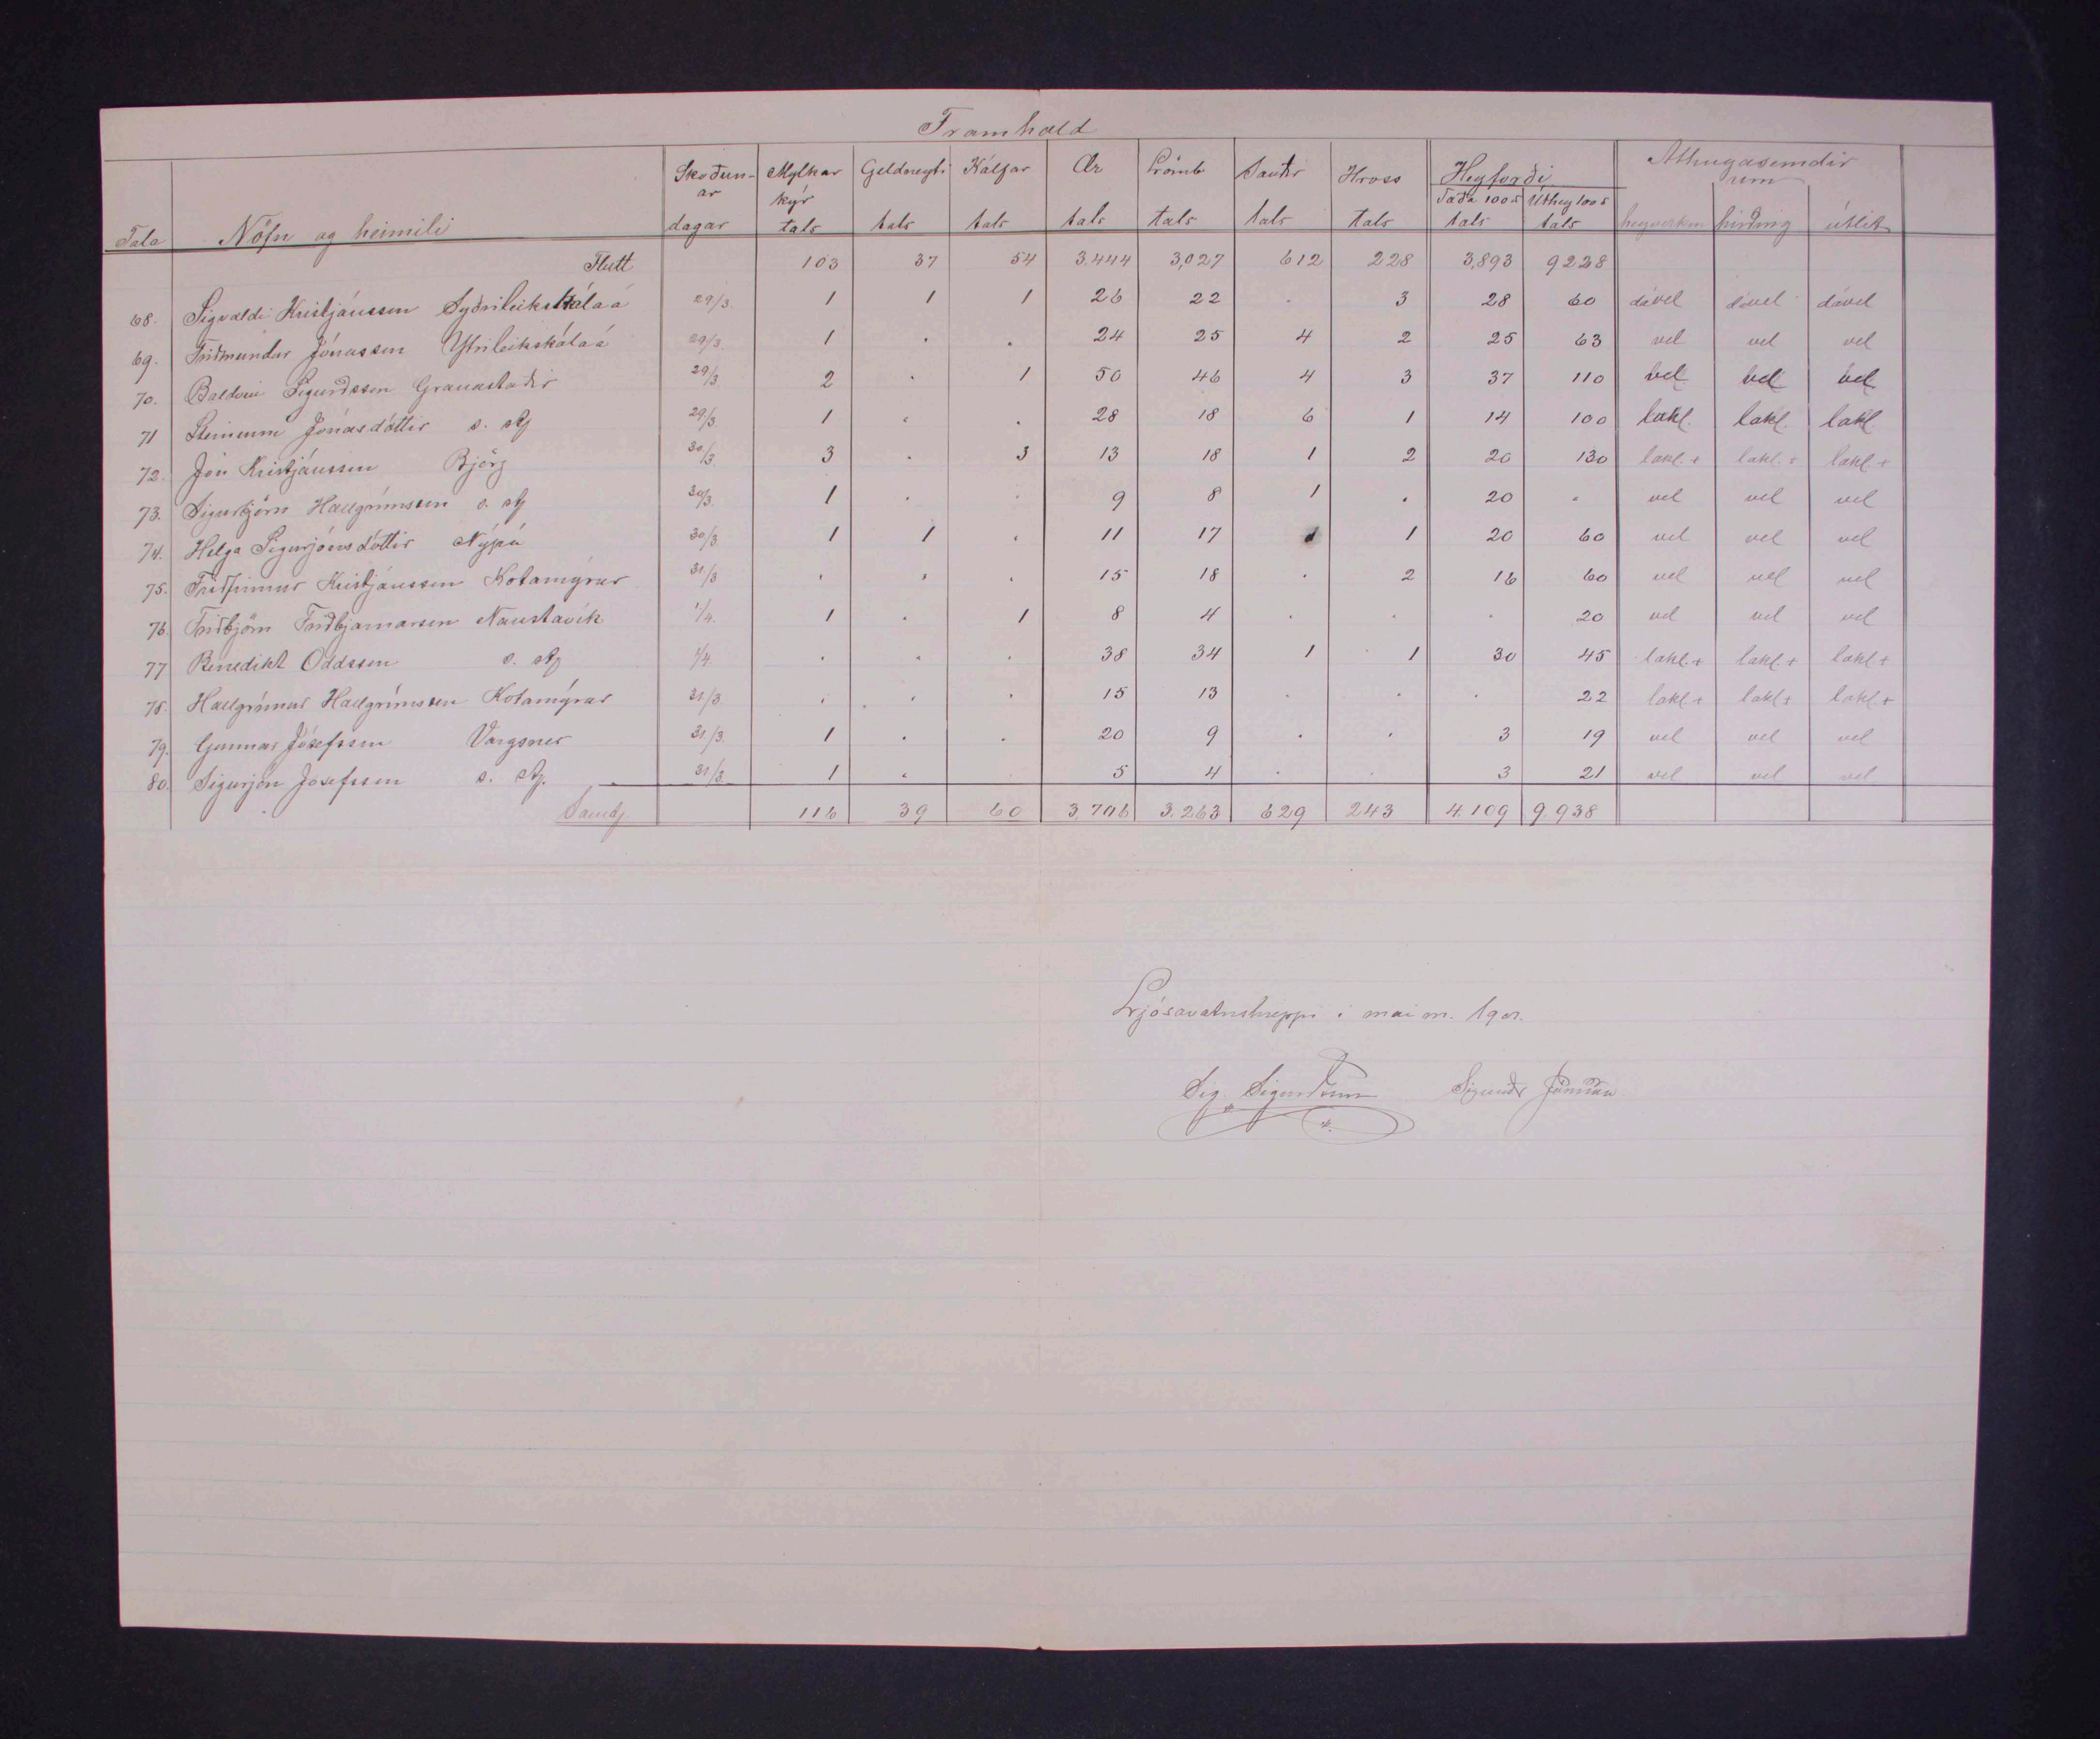 Framhald
Tala Nöfn og heimili Skoðunar dagar Mylkar kýr tals Geldneyti tals Kálfar tals Ær tals Lömb tals Sauðir tals Hross tals Heyforði Taða 100 tals Úthey 100 tals Athugasemdir um heyverkun hirðing útlit
Flutt 103 37 54 3.444 3,027 612 228 3,893 9238
68. Sigvaldi Kristjánsson Syðrileikskálaá 29/3. 1 1 1 26 22 . 3 28 60 dável dável dável
69. Friðmundur Jónasson Ytrileikskálaá 29/3. 1 . . 24 25 4 2 25 63 vel vel vel
70. Baldvin Sigurðsson Granastaðir 29/3 2 . 1 50 46 4 3 37 110 vel vel vel
71 Steinunn Jónasdóttir s. st. 29/3. 1 . . 28 18 6 1 14 100 lakl. lakl. lakl
72. Jón Kristjánsson Björg 30/3. 3 . 3 13 18 1 2 20 130 lakl. + lakl. + lakl +
73. Sigurbjörn Hallgrímsson s. st. 30/3. 1 . . 9 8 1 . 20 . vel vel vel
74. Helga Sigurjónsdóttir Nýpá 30/3. 1 1 . 11 17 1 20 60 vel vel vel
75. Friðfinnur Kristjánsson Kotamýrar 31/3 . . . 15 18 . 2 16 60 vel vel vel
76. Friðbjörn Friðbjarnarson Naustavík 1/4. 1 . 1 8 4 . . . 20 vel vel vel
77 Benedikt Oddsson s. st. 1/4. . . . 38 34 1 1 30 45 lakl. + lakl. + lakl +
78. Hallgrímur Hallgrímsson Kotamýrar 31./3. . . . 15 13 . . . 22 lakl + lakl + lakl +
79. Gunnar Jósefsson Vargsnes 31./3. 1 . . 20 9 . . 3 19 vel vel vel
80. Sigurjón Jósefsson s. st. 31/3. 1 . . 5 4 . . 3 21 vel vel vel
Samtj. 116 39 60 3,706 3.263 629 243 4.109 9.938
Ljósavatnshreppi i mai m. 1901.
Sig. Sigurðsson Sigurður Jónsson